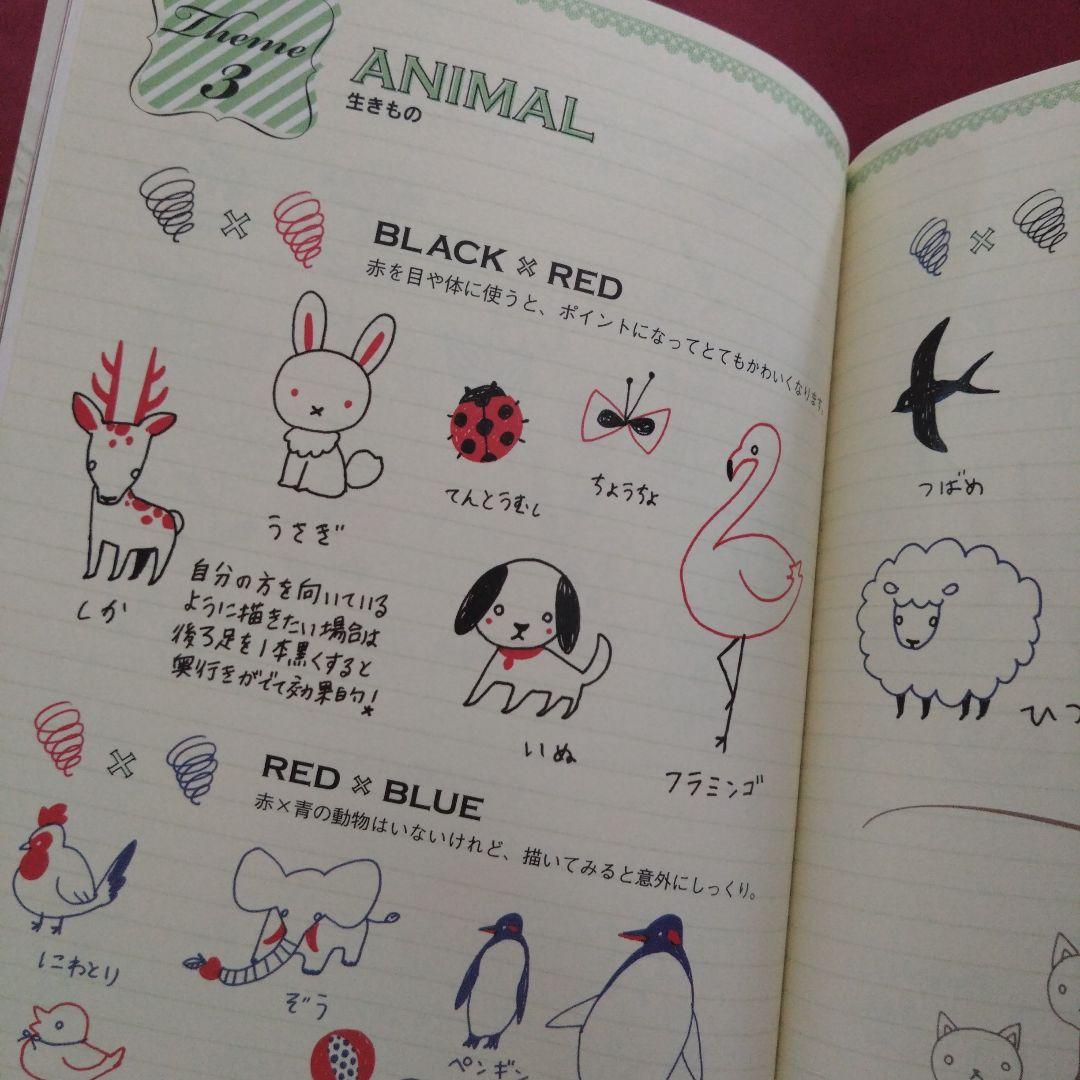 Theme
3
ANIMAL
生きもの
BLACK × RED
赤を目や体に使うと、ポイントになってとてもかわいくなります。
しか
うさぎ
てんとうむし
ちょうちょ
フラミンゴ
いぬ
自分の方を向いている
ように描きたい場合は
後ろ足を1本黒くすると
奥行きがでて効果的!
RED × BLUE
赤×青の動物はいないけれど、描いてみると意外にしっくり。
にわとり
ぞう
ペンギン
×
つばめ
ひつ